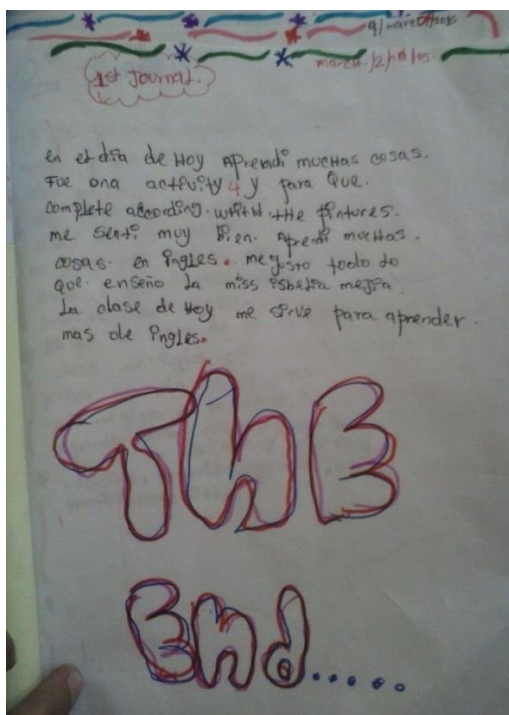 1st Journal.
en el día de Hoy Aprendi mucHas cosas.
Fue ona activity 4 y para Que.
complete according. wiht. tHe pintures.
me senti muy bien. Aprendi mucHas.
cosas. en ingles. me gusto todo lo
que. enseño la miss isbelia mejia
La clase de Hoy me sirve para aprender.
mas de ingles.
THE
End.....